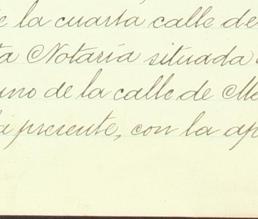 e la cuarta calle de
ta Notaría situada
uno de la calle de Me
la presente, con la ap